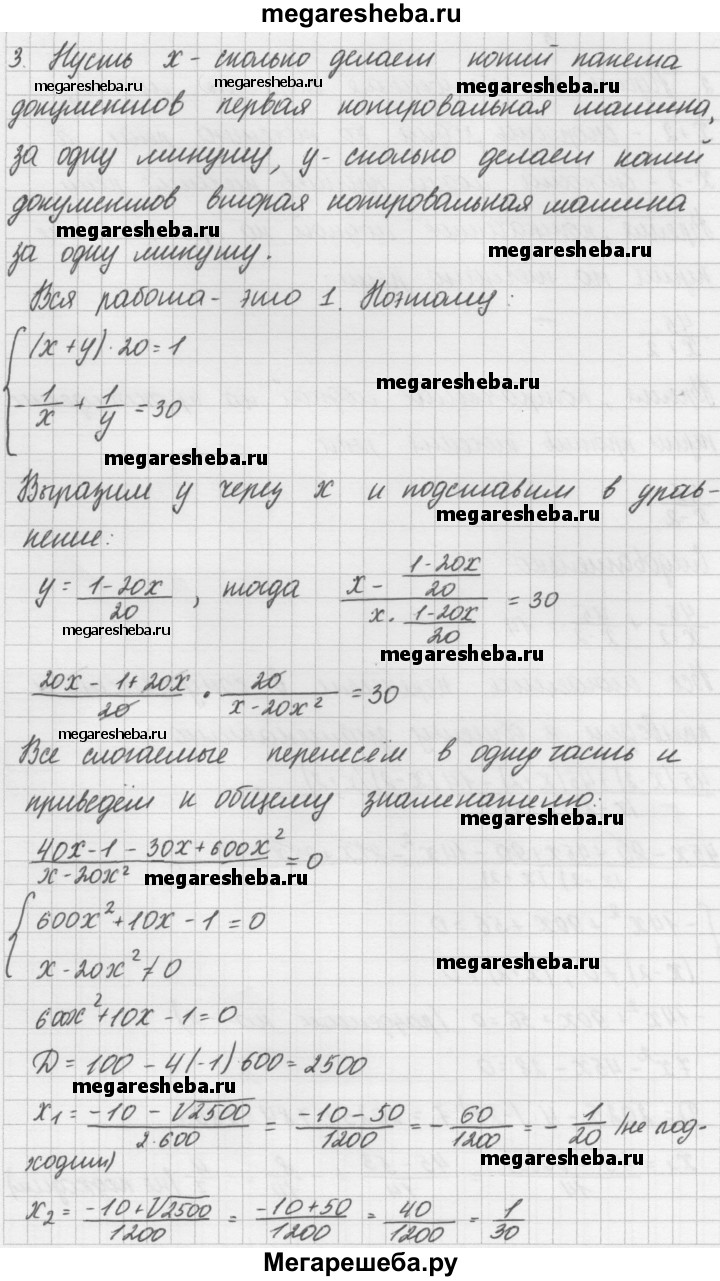 megaresheba.ru
3. Пусть x - сколько делает копий пакета
megaresheba.ru megaresheba.ru
документов первая копировальная машина,
за одну минуту, y - сколько делает копий
документов вторая копировальная машина
megaresheba.ru megaresheba.ru
за одну минуту.
Вся работа - это 1. Поэтому:
(x + y) · 20 = 1
megaresheba.ru
-1/x + 1/y = 30
megaresheba.ru
Выразим y через x и подставим в урав-
megaresheba.ru
нение:
y = (1-20x)/20, тогда (x - (1-20x)/20)/(x · (1-20x)/20) = 30
megaresheba.ru
megaresheba.ru
(20x - 1 + 20x)/20 · 20/(x - 20x²) = 30
megaresheba.ru
Все слогаемые перенесём в одну часть и
приведём к общему знаменателю:
megaresheba.ru
(40x - 1 - 30x + 600x²)/(x - 20x²) = 0
megaresheba.ru
600x² + 10x - 1 = 0
x - 20x² ≠ 0
megaresheba.ru
600x² + 10x - 1 = 0
D = 100 - 4(-1)600 = 2500
megaresheba.ru
x₁ = (-10 - √2500)/(2·600) = (-10 - 50)/1200 = -60/1200 = -1/20 (не под-
megaresheba.ru
ходит)
x₂ = (-10 + √2500)/1200 = (-10 + 50)/1200 = 40/1200 = 1/30
Мегарешеба.ру